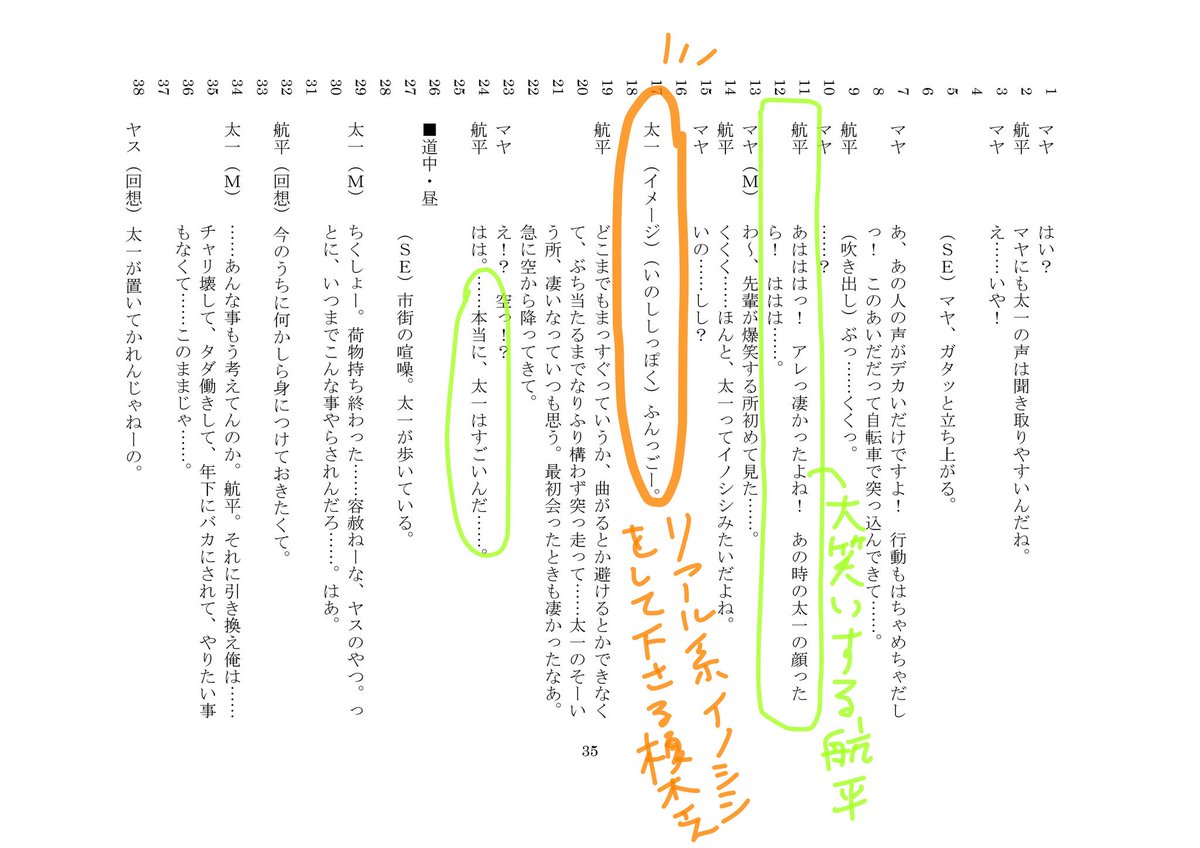 1 マヤ はい？
2 航平 マヤにも太一の声は聞き取りやすいんだね。
3 マヤ え……いや！
4
5 （SE）マヤ、ガタッと立ち上がる。
6
7 マヤ あ、あの人の声がデカいだけですよ！ 行動もはちゃめちゃだし
8 っ！ このあいだだって自転車で突っ込んできて……。
9 航平 （吹き出し）ぶっ……くくっ。
10 マヤ ……？
11 航平 あはははっ！ アレっ凄かったよね！ あの時の太一の顔った
12 ら！ ははは……。
13 マヤ（M） わ～、先輩が爆笑する所初めて見た……。
14 航平 くくく……ほんと、太一ってイノシシみたいだよね。
15 マヤ いの……しし？
16
17 太一（イメージ）（いのししっぽく）ふんっごー。
18
19 航平 どこまでもまっすぐっていうか、曲がるとか避けるとかできなく
20 て、ぶち当たるまでなりふり構わず突っ走って……太一のそーい
21 う所、凄いなっていつも思う。最初会ったときも凄かったなあ。
22 急に空から降ってきて。
23 マヤ え！？ 空っ！？
24 航平 はは。……本当に、太一はすごいんだ……。
25
26 ■道中・昼
27 （SE）市街の喧噪。太一が歩いている。
28
29 太一（M） ちくしょー。荷物持ち終わった……容赦ねーな、ヤスのやつ。っ
30 とに、いつまでこんな事やらされんだろ……。はあ。
31
32 航平（回想）今のうちに何かしら身につけておきたくて。
33
34 太一（M） ……あんな事もう考えてんのか。航平。それに引き換え俺は……
35 チャリ壊して、タダ働きして、年下にバカにされて、やりたい事
36 もなくて……このままじゃ……。
37
38 ヤス（回想）太一が置いてかれんじゃねーの。
35
大笑いする航平
リアル系イノシシ
をして下さる榎木さん